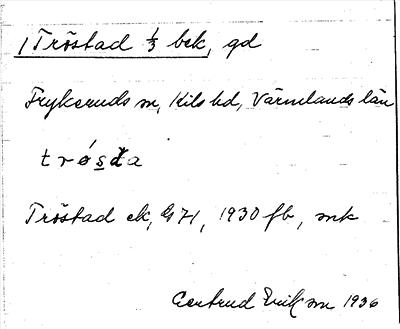 1 Tröstad ⅓ bek, gd
Frykeruds sn, Kils hd, Värmlands län
trǿsta
Tröstad ek, G71, 1930 fb, mk
Gertrud Eriksson 1936